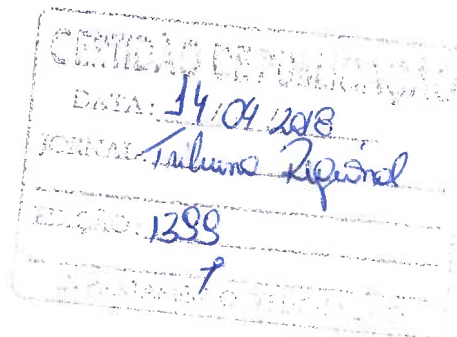 CERTIDÃO DE PUBLICAÇÃO
DATA: 14/04/2018
JORNAL: Tribuna Regional
EDIÇÃO: 1399